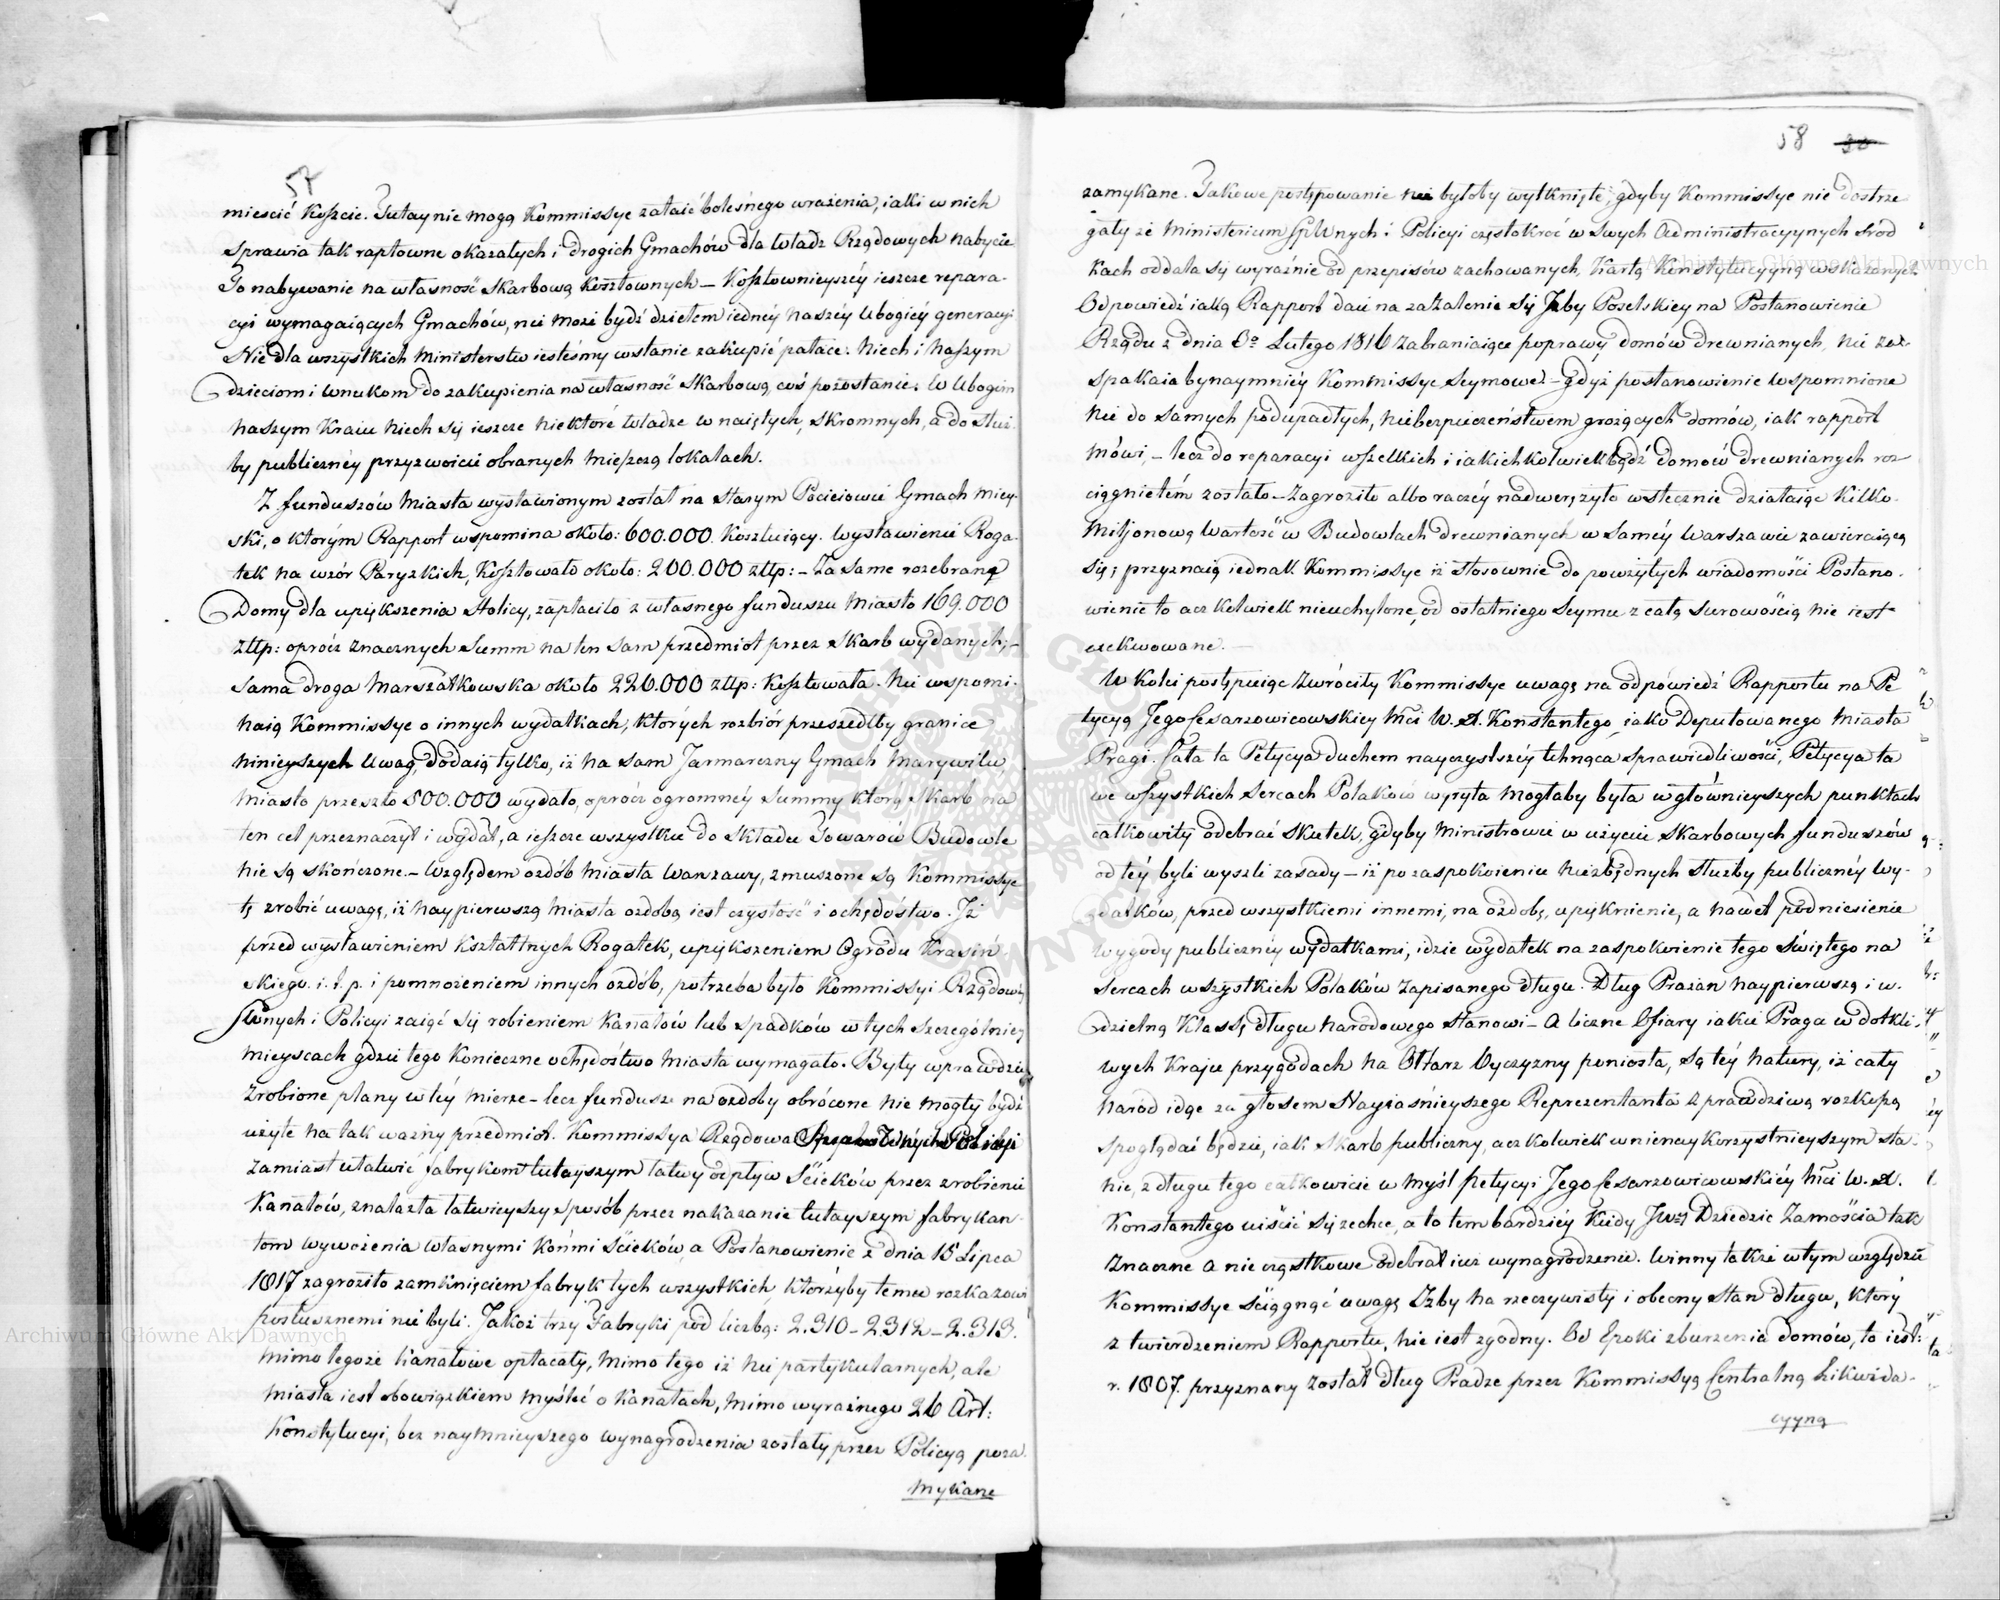 57
mieścić Koszcie. Tutay nie mogą Kommissye zataić bolesnego wrażenia, iakie w nich
sprawia tak raptowne okazałych i drogich Gmachów dla Władz Rządowych nabycie
To nabywanie na własność Skarbową kosztownych – Kosztownieyszéy ieszcze repara-
cyi wymagaiących Gmachów, nie może bydź dziełem iednéy naszéy Ubogiéy generacyi
Nie dla wszystkich Ministerstw iesteśmy wstanie zakupić pałace. Niech i Naszym
dzieciom i wnukom do zakupienia na własność Skarbową coś pozostanie. W Ubogim
naszym Kraiu niech się ieszcze niektóre Władze w naiętych, skromnych, a do służ-
by publicznéy przyzwoicie obranych mieszczą lokalach.
Z funduszów Miasta wystawionym został na Starym Pociejowie Gmach miey-
ski, o którym Rapport wspomina około: 600.000 Kosztuiący. Wystawienie Roga-
tek na wzór Paryzkich, Kosztowało około: 200.000 złłp: – Za same rozebrane
Domy dla upiększenia Stolicy, zapłaciło z własnego funduszu Miasto 169.000
złłp: oprócz znacznych Summ na ten sam przedmiot przez Skarb wydanych; –
Sama droga Marszałkowska około 220.000 złłp: Kosztowała. Nie wspomi-
naią Kommissye o innych wydatkach, których rozbiór przeszedłby granice
ninieyszych Uwag, dodaią tylko, iż na sam Jarmarczny Gmach Marywilu,
Miasto przeszło 500.000 wydało, oprócz ogromnéy Summy którą Skarb na
ten cel przeznaczył i wydał, a ieszcze wszystkie do Składu Towarów Budowle
nie są skończone. – Względem ozdób Miasta Warszawy, zmuszone są Kommissye
tę zrobić uwagę, iż naypierwszą Miasta ozdobą iest czystość i ochędóstwo. Iż
przed wystawieniem Kształtnych Rogatek, upiększeniem Ogrodu Krasiń-
skiego. i. t. p. i pomnożeniem innych ozdób, potrzeba było Kommissyi Rządowéy
SWnych i Policyi zaiąć się robieniem Kanałów lub spadków w tych szczególniey
mieyscach gdzie tego konieczne ochędóstwo Miasta wymagało. Były wprawdzie
zrobione plany w téy mierze – lecz fundusze na ozdoby obrócone nie mogły bydź
użyte na tak ważny przedmiot. Kommissya Rządowa Spraw Wewnętrznych i Policyi
zamiast ułatwić fabrykom tutayszym łatwy odpływ Ścieków przez zrobienie
Kanałów, znalazła łatwieyszy sposób przez nakazanie tutayszym fabrykan-
tom wywożenia własnymi Końmi Ścieków, a Postanowienie z dnia 15 Lipca
1817 zagroziło zamknięciem fabryk tych wszystkich którzyby temu rozkazowi
posłusznemi nie byli. Jakoż trzy Fabryki pod liczbą: 2.310 – 2.312 – 2.313.
Mimo tego że Kanałowe opłacały, Mimo tego iż nie partykularnych, ale
Miasta iest obowiązkiem myśleć o Kanałach, Mimo wyraźnego 26 Art:
Konstytucyi, bez naymnieyszego wynagrodzenia zostały przez Policyą poza-
mykane
58
zamykane. Takowe postępowanie nie byłoby wytknięte, gdyby Kommissye nie dostrze
gały że Ministerium SpWnych i Policyi częstokroć w swych Administracyynych środ
kach oddala się wyraźnie od przepisów zachowanych, Kartą Konstytucyyną wskazanych.
Odpowiedź iaką Rapport daie na zażalenie się Izby Poselskiey na Postanowienie
Rządu z dnia 6o Lutego 1816 zabraniaiące poprawy domów drewnianych, nie zas-
spakaia bynaymniéy Kommissye Seymowe – gdyż postanowienie wspomnione
nie do samych podupadłych, niebezpieczeństwem grożących domów, iak rapport
mówi, – lecz do reparacyi wszelkich i iakichkolwiekbądź domów drewnianych roz-
ciągniętém zostało – Zagroziło albo raczéy nadwerężyło wstecznie działaiąc Kilko-
Miljonową Wartość w Budowlach drewnianych w saméy Warszawie zawieraiącą
się; przyznaią iednak Kommissye iż stosownie do powziętych wiadomości Postano-
wienie to aczkolwiek nieuchylone, od ostatniego Seymu z całą surowością nie iest
exekwowane. –
W kolei postępuiąc zwróciły Kommissye uwagę na odpowiedź Rapportu na Pe
tycyą Jego Cesarzowicowskiey Mci W. X. Konstantego, iako Deputowanego Miasta
Pragi. Cała ta Petycya duchem nayczystszéy tchnąca sprawiedliwości, Petycya ta
we wszystkich Sercach Polaków wyryta mogłaby była w główniejszych punktach
całkowity odebrać skutek, gdyby Ministrowie w użyciu skarbowych funduszów
od téy byli wyszli zasady – iż po zaspokoieniu niezbędnych służby publicznéy wy-
datków, przed wszystkiemi innemi, na ozdobę, upięknienie, a nawet podniesienie
wygody publicznéy wydatkami, idzie wydatek na zaspokoienie tego świętego na
Sercach wszystkich Polaków zapisanego długu. Dług Prażan naypierwszą i w.
dzielną Klassę długu narodowego stanowi – a liczne Ofiary iakie Praga w dotkli-
wych Kraju przygodach na Ołtarz Oyczyzny poniosła, są téy natury, iż cały
Naród idąc za głosem Nayiaśnieyszego Reprezentanta z prawdziwą rozkoszą
spoglądać będzie, iak Skarb publiczny, aczkolwiek w nienaykorzystnieyszym sta-
nie, z długu tego całkowicie w myśl petycyi Jego Cesarzowicowskiéy Mci W. X.
Konstantego uiścić się zechce, a to tem bardziéy kiedy JWny Dziedzic Zamościa tak
Znaczne a nie cząstkowe odebrał iuż wynagrodzenie. Winny także w tym względzie
Kommissye ściągnąć uwagę Izby na rzeczywisty i obecny stan długu, który
z twierdzeniem Rapportu, nie iest zgodny. Od Epoki zburzenia domów, to iest:
r. 1807. przyznany został dług Pradze przez Kommissyą Centralną Likwida-
cyyną
Archiwum Główne Akt Dawnych
Archiwum Główne Akt Dawnych
ARCHIWUM GŁÓWNE AKT DAWNYCH